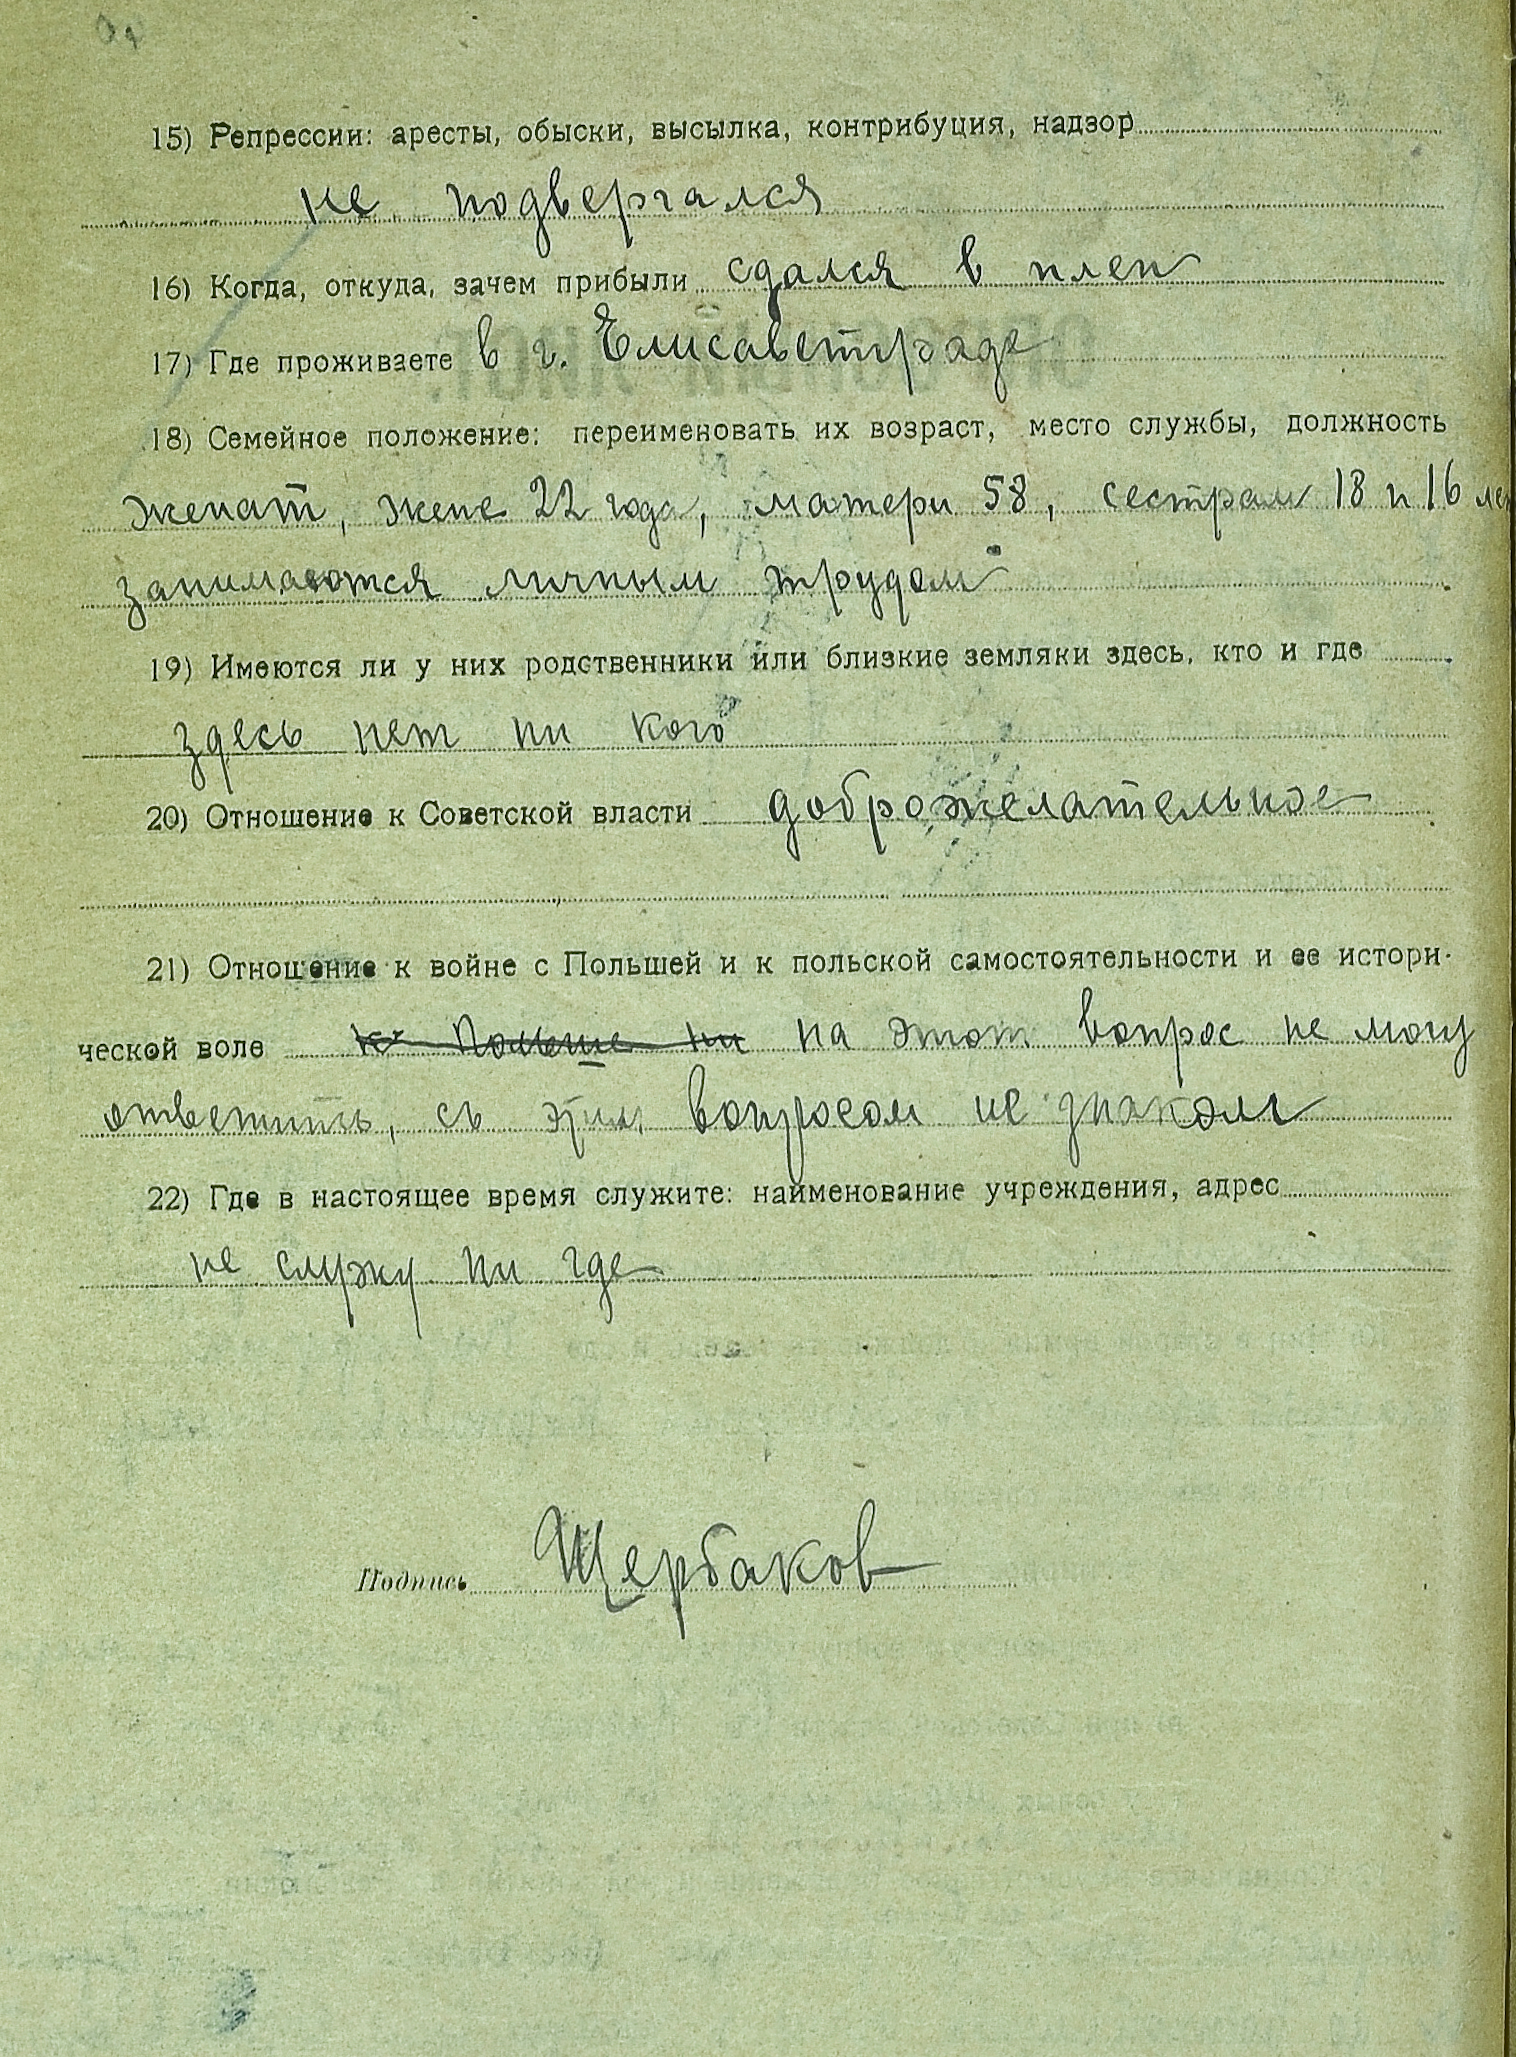 15) Репрессии: аресты, обыски, высылка, контрибуция, надзор
не подвергался
16) Когда, откуда, зачем прибыли сдался в плен
17) Где проживаете в г. Елисаветграде
18) Семейное положение: переименовать их возраст, место службы, должность
женат, жене 22 года, матери 58, сестрам 18 и 16 лет
занимаются личным трудом
19) Имеются ли у них родственники или близкие земляки здесь, кто и где
здесь нет ни кого
20) Отношение к Советской власти доброжелательное
21) Отношение к войне с Польшей и к польской самостоятельности и ее истори-
ческой воле к Польше ни на этот вопрос не могу
ответить, съ этим вопросом не знаком
22) Где в настоящее время служите: наименование учреждения, адрес
не служу ни где
Подпись Щербаков